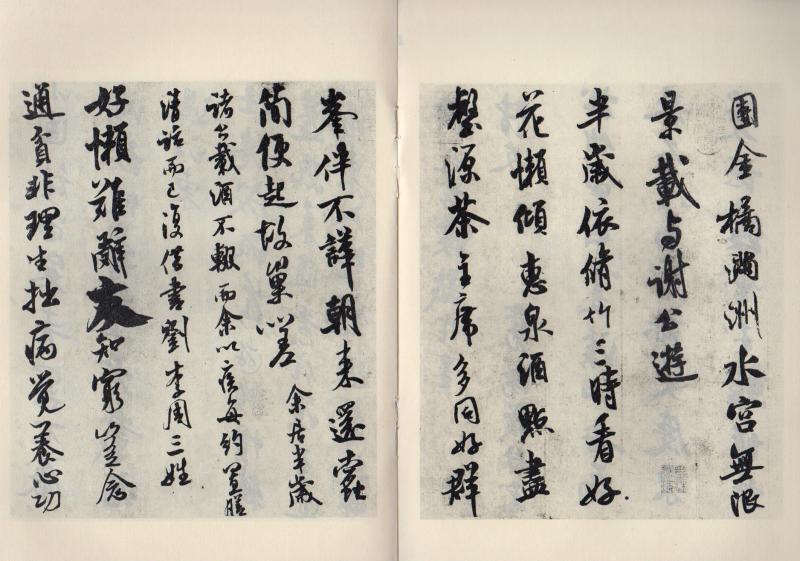 園金橘滿洲水宮無限
景載與謝公遊
半歲依脩竹三時看好
花懶傾惠泉酒點盡
壑源茶主席多同好群
峯伴不譁朝來還蠹
簡便起故巢嗟 余居半歲
諸公載酒不輟而余以疾每約置膳
清話而已復借書劉李周三姓
好懶難辭友知窮豈念
通貧非理生拙病覺養心功